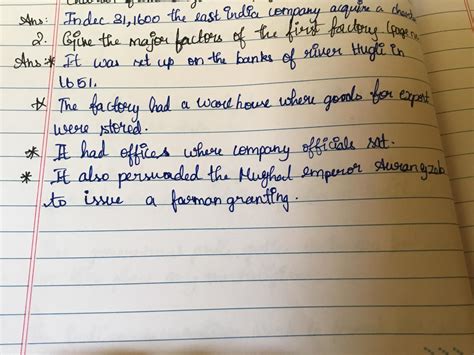 Ans: In dec 31, 1600 the east india company acquire a
2. Give the major factors of the first factory (page
Ans:* It was set up on the banks of river Hugli in
1651.
* The factory had a warehouse where goods for export
were stored.
* It had offices where company officials sat.
* It also persuaded the Mughal emperor Aurangzeb
to issue a farman granting.